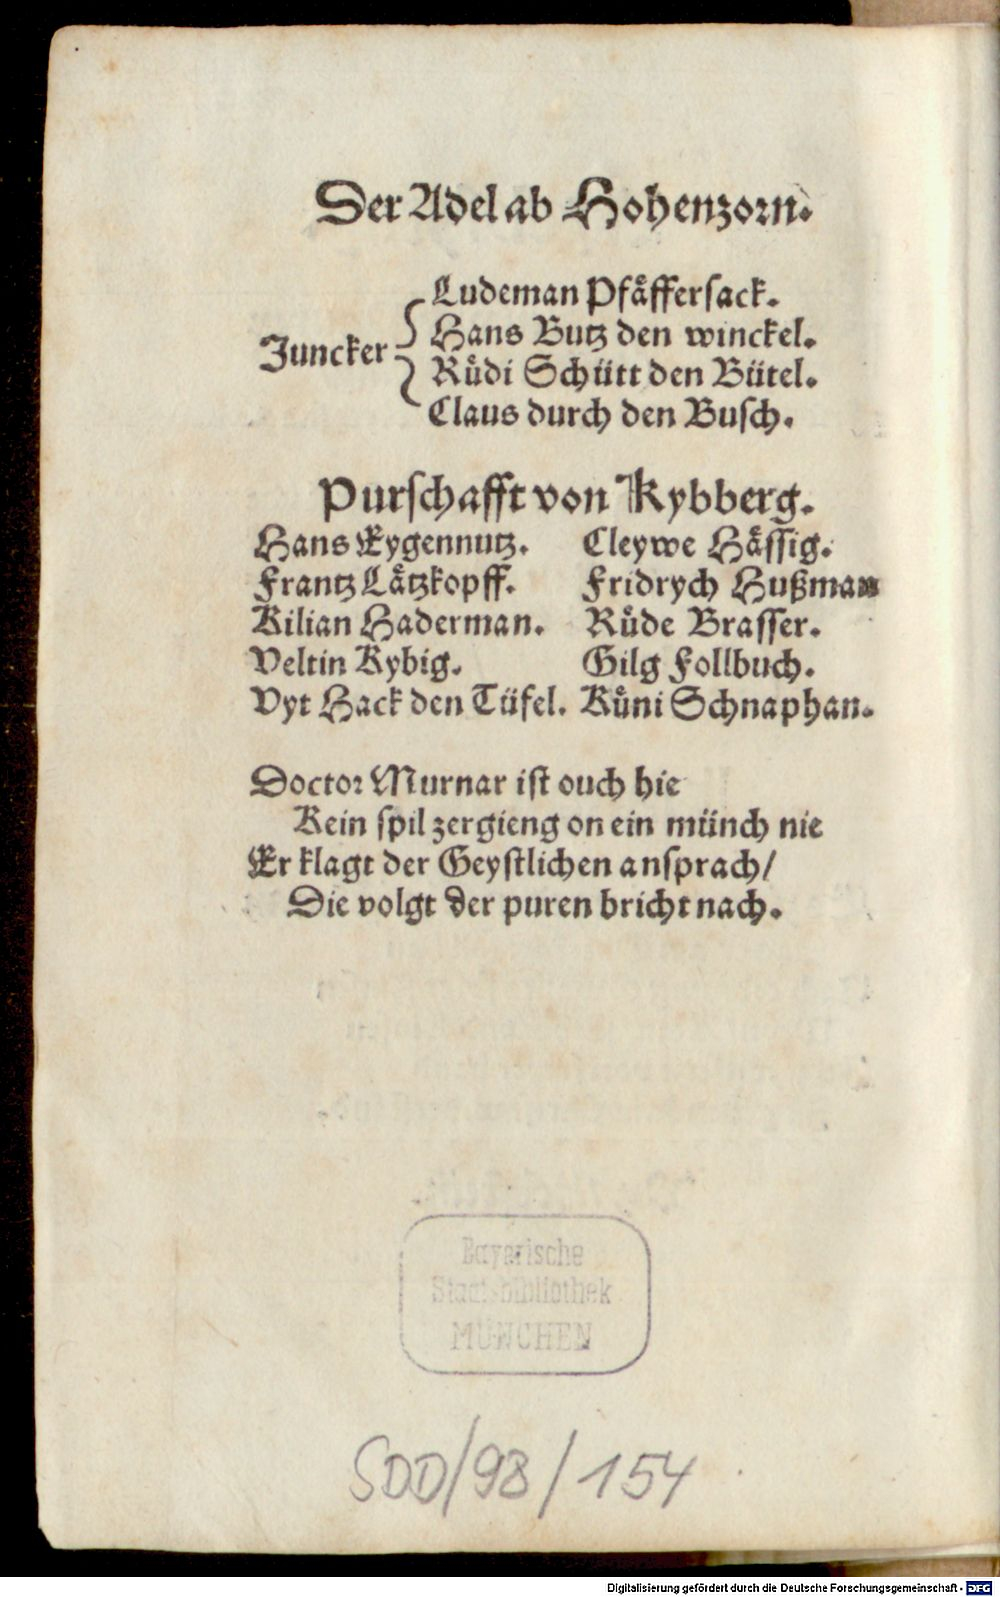 Der Adel ab Hohenzorn.
Ludeman Pfåffersack.
Hans Butz den winckel.
Juncker
Růdi Schütt den Bütel.
Claus durch den Busch.
Purschafft von Kybberg.
Hans Eygennutz. Cleywe Håssig.
Frantz Låtzkopff. Fridrych Hußman
Kilian Haderman. Růde Brasser.
Veltin Kybig. Gilg Follbuch.
Vyt Hack den Tüfel. Kůni Schnaphan.
Doctor Murnar ist ouch hie
Kein spil zergieng on ein münch nie
Er klagt der Geystlichen ansprach/
Die volgt der puren bricht nach.
Bayerische
Staatsbibliothek
MÜNCHEN
SDD/98/154
Digitalisierung gefördert durch die Deutsche Forschungsgemeinschaft - DFG